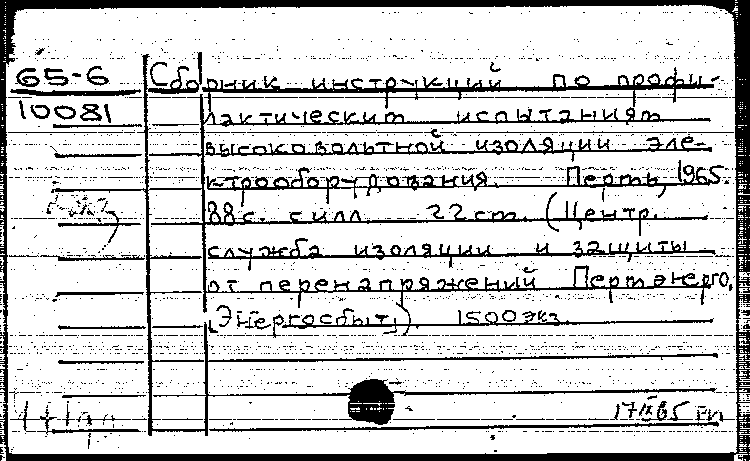 65-6
10081
Сборник инструкций по профи-
лактическим испытаниям
высоковольтной изоляции эле-
ктрооборудования. Пермь, 1965.
88 с. с илл. 22 cm. (Центр.
служба изоляции и защиты
от перенапряжений Пермэнерго,
Энергосбыт). 1500 экз.